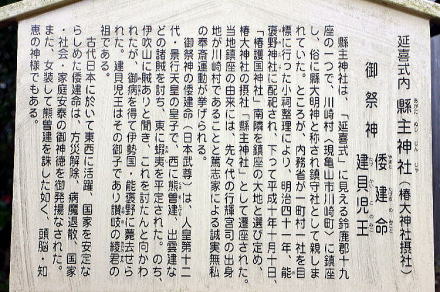 延喜式内 縣主神社(椿大神社摂社)
あがた ぬし じん じゃ
御祭神 倭建命
建貝児王
縣主神社は、「延喜式」に見える鈴鹿郡十九
座の一つで、川崎村(現亀山市川崎町)に鎮座
し、俗に縣大明神と称され鎮守社として親しま
れていた。ところが、内務省が一町村一社を目
標に行った小祠整理により、明治四十一年、能
褒野神社に配祀され、下って平成十年十月十日、
「椿護国神社」南隣を鎮座の大地と選び定め、
椿大神社の摂社「縣主神社」として遷座された。
当地鎮座の由来には、先々代の行輝宮司の出身
地が川崎村であることと篤志家による誠実無私
の奉斎運動が挙げられる。
御祭神の倭建命(日本武尊)は、人皇第十二
代・景行天皇の皇子で、西に熊曽建、出雲建な
どの諸賊を討ち、東に蝦夷を平定された。のち、
伊吹山に賊ありと聞き、これを討たんと向かわ
れたが、御病を得て伊勢国・能褒野に薨去せら
れた。建貝児王はその御子であり讃岐の綾君の
祖である。
古代日本に於いて東西に活躍、国家を安定な
らしめた倭建命は、方災解除、病魔退散、国家
・社会、家庭安泰の御神徳を御発揚なされた。
また、女装して熊曽建を誅した如く、頭脳・知
恵の神様でもある。